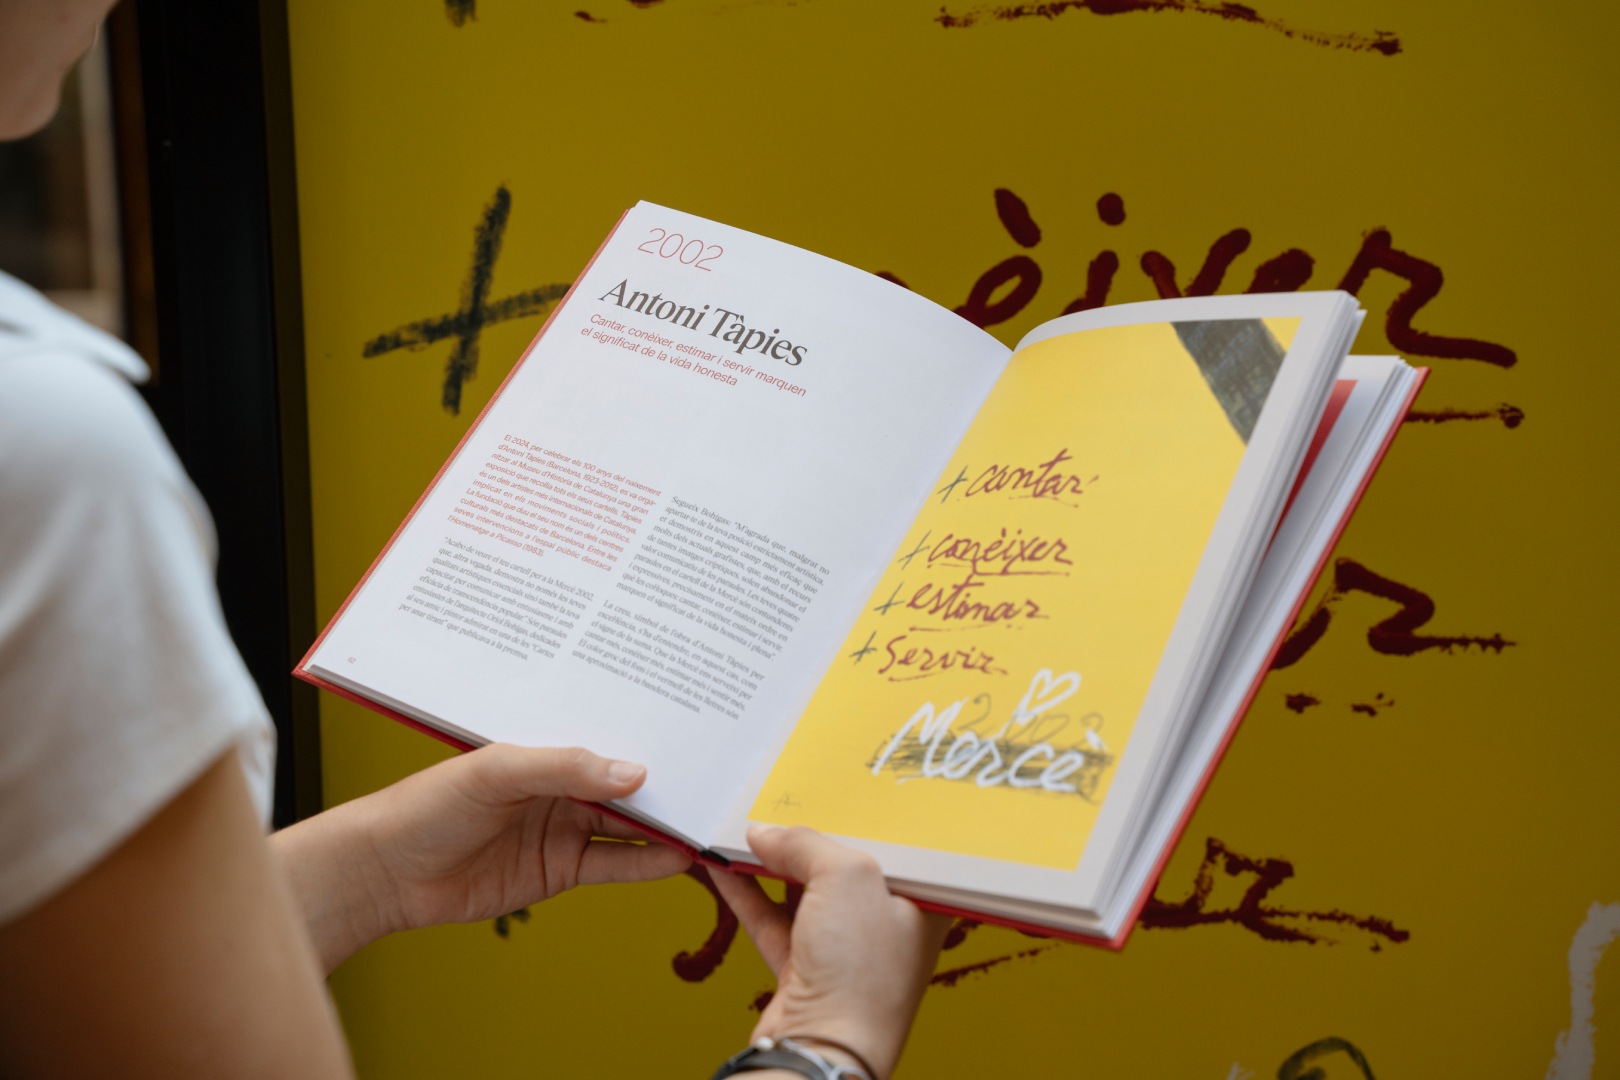 2002
Antoni Tàpies
Cantar, conèixer, estimar i servir marquen
el significat de la vida honesta
El 2024, per celebrar els 100 anys del naixement
d'Antoni Tàpies (Barcelona, 1923-2012), es va orga-
nitzar al Museu d'Història de Catalunya una gran
exposició que recollia tots els seus cartells. Tàpies
és un dels artistes més internacionals de Catalunya,
implicat en els moviments socials i polítics.
La fundació que duu el seu nom és un dels centres
culturals més destacats de Barcelona. Entre les
seves intervencions a l'espai públic destaca
l'Homenatge a Picasso (1983).
"Acabo de veure el teu cartell per a la Mercè 2002,
que, altra vegada, demostra no només les teves
qualitats artístiques essencials sinó també la teva
capacitat per comunicar amb entusiasme i amb
eficàcia de transcendència popular." Són paraules
entusiastes de l'arquitecte Oriol Bohigas, dedicades
al seu amic i pintor admirat en una de les "Cartes
per anar tirant" que publicava a la premsa.
62
Segueix Bohigas: "M'agrada que, malgrat no
apartar-te de la teva posició estrictament artística,
et demostris en aquest camp més eficaç que
molts dels actuals grafistes, que, amb el recurs
de tantes imatges críptiques, solen abandonar el
valor comunicatiu de les paraules. Les teves quatre
paraules en el cartell de la Mercè són contundents
i expressives, precisament en el mateix ordre en
què les col·loques: cantar, conèixer, estimar i servir,
marquen el significat de la vida honesta i plena".
La creu, símbol de l'obra d'Antoni Tàpies per
excel·lència, s'ha d'entendre, en aquest cas, com
el signe de la suma. Que la Mercè ens serveixi per
cantar més, conèixer més, estimar més i sentir més.
El color groc del fons i el vermell de les lletres són
una aproximació a la bandera catalana.
+ cantar
+ conèixer
+ estimar
+ Servir
2002
Mercè
+
èixer